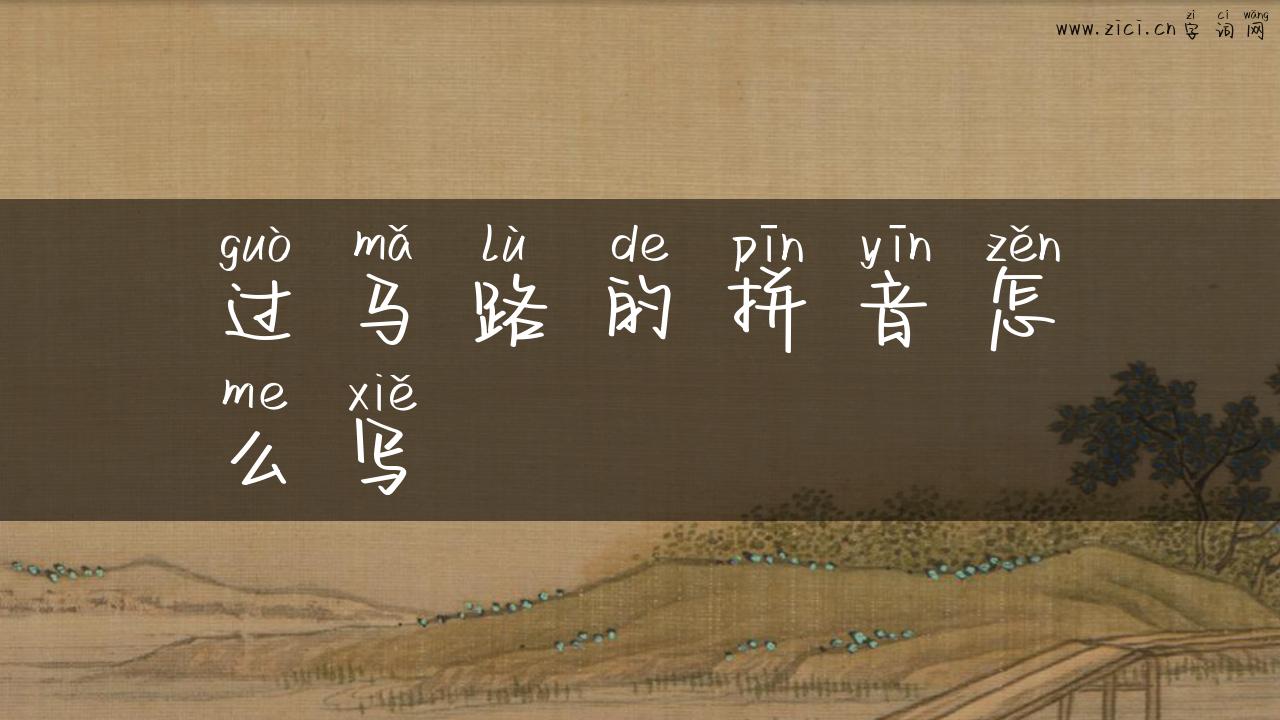 zì cí wǎng
www.zici.cn 字 词 网
guò mǎ lù de pīn yīn zěn
过 马 路 的 拼 音 怎
me xiě
么 写